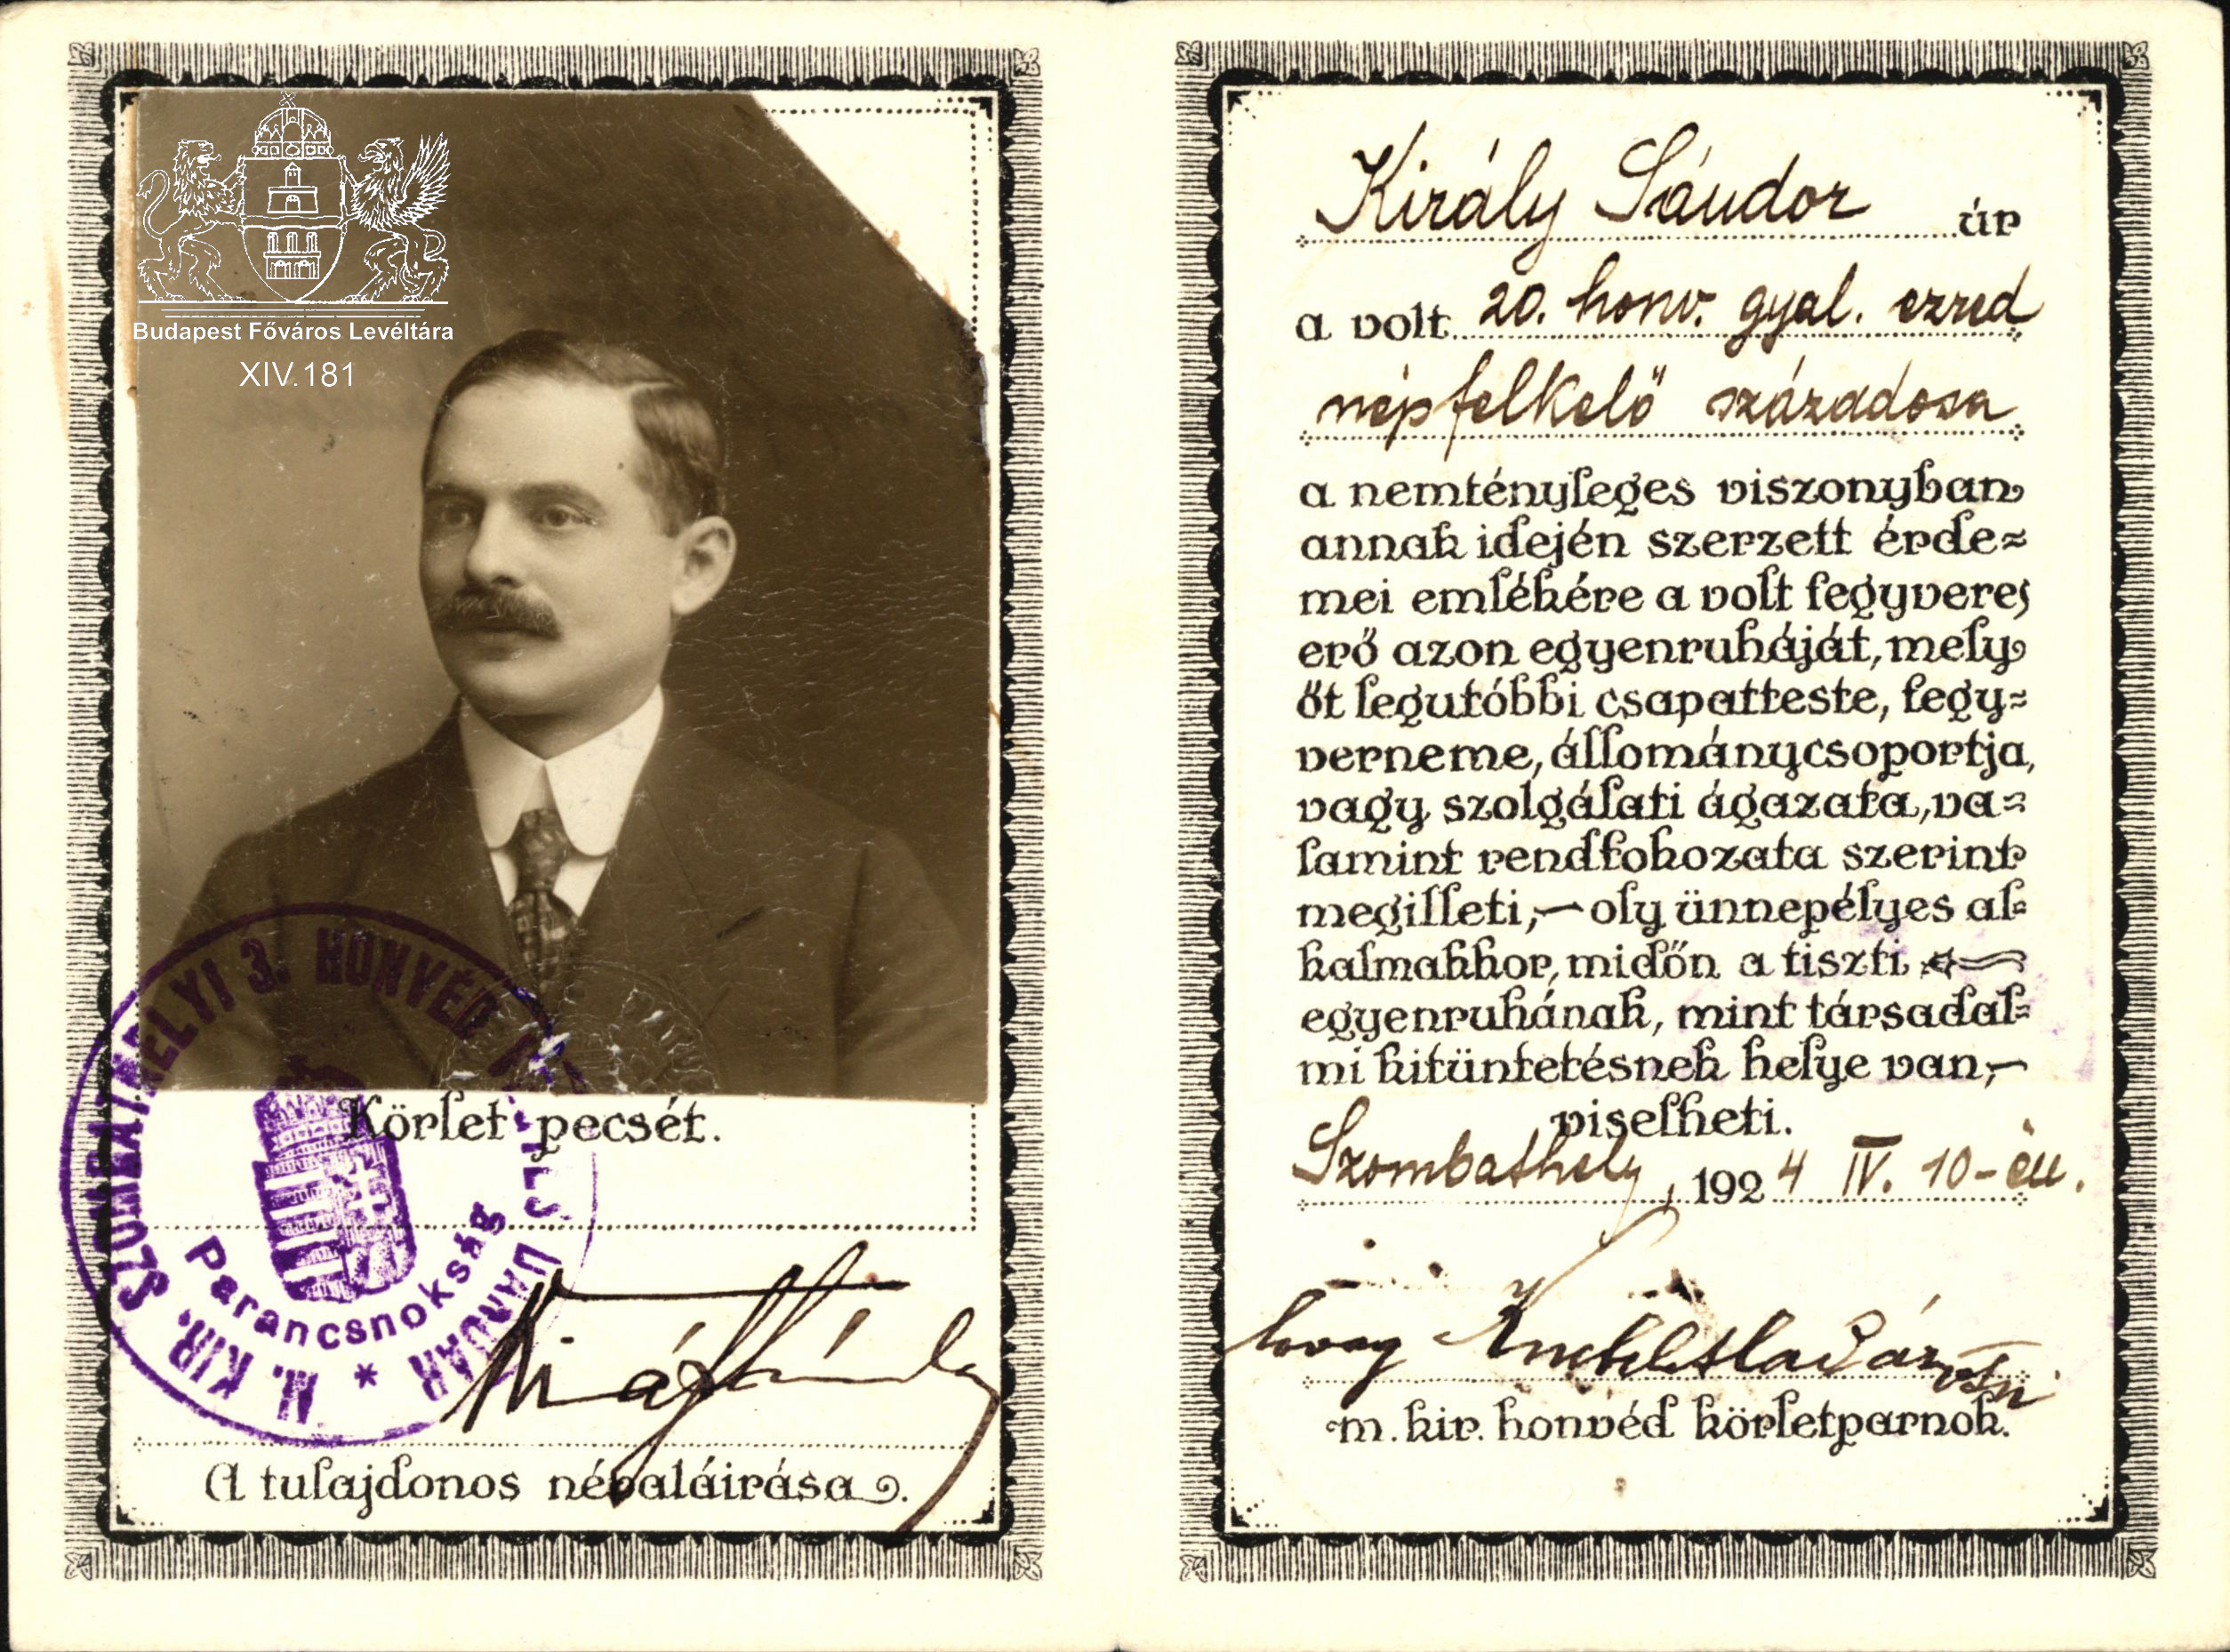 Budapest Főváros Levéltára
XIV.181
M. KIR. SZOMBATHELYI 3. HONVÉD
Parancsnokság
Körlet pecsét.
A tulajdonos névaláirása.
Király Sándor úr
a volt 20. honv. gyal. ezred
népfelkelő századosa
a nemtényleges viszonyban
annak idején szerzett érde=
mei emlékére a volt fegyveres
erő azon egyenruháját, mely
őt legutóbbi csapatteste, fegy=
verneme, állománycsoportja,
vagy szolgálati ágazata, va=
lamint rendfokozata szerint
megilleti,— oly ünnepélyes al=
kalmakkor, midőn a tiszti
egyenruhának, mint társadal=
mi kitüntetésnek helye van,—
viselheti.
Szombathely, 1924 IV. 10-én.
m. kir. honvéd körletparnok.